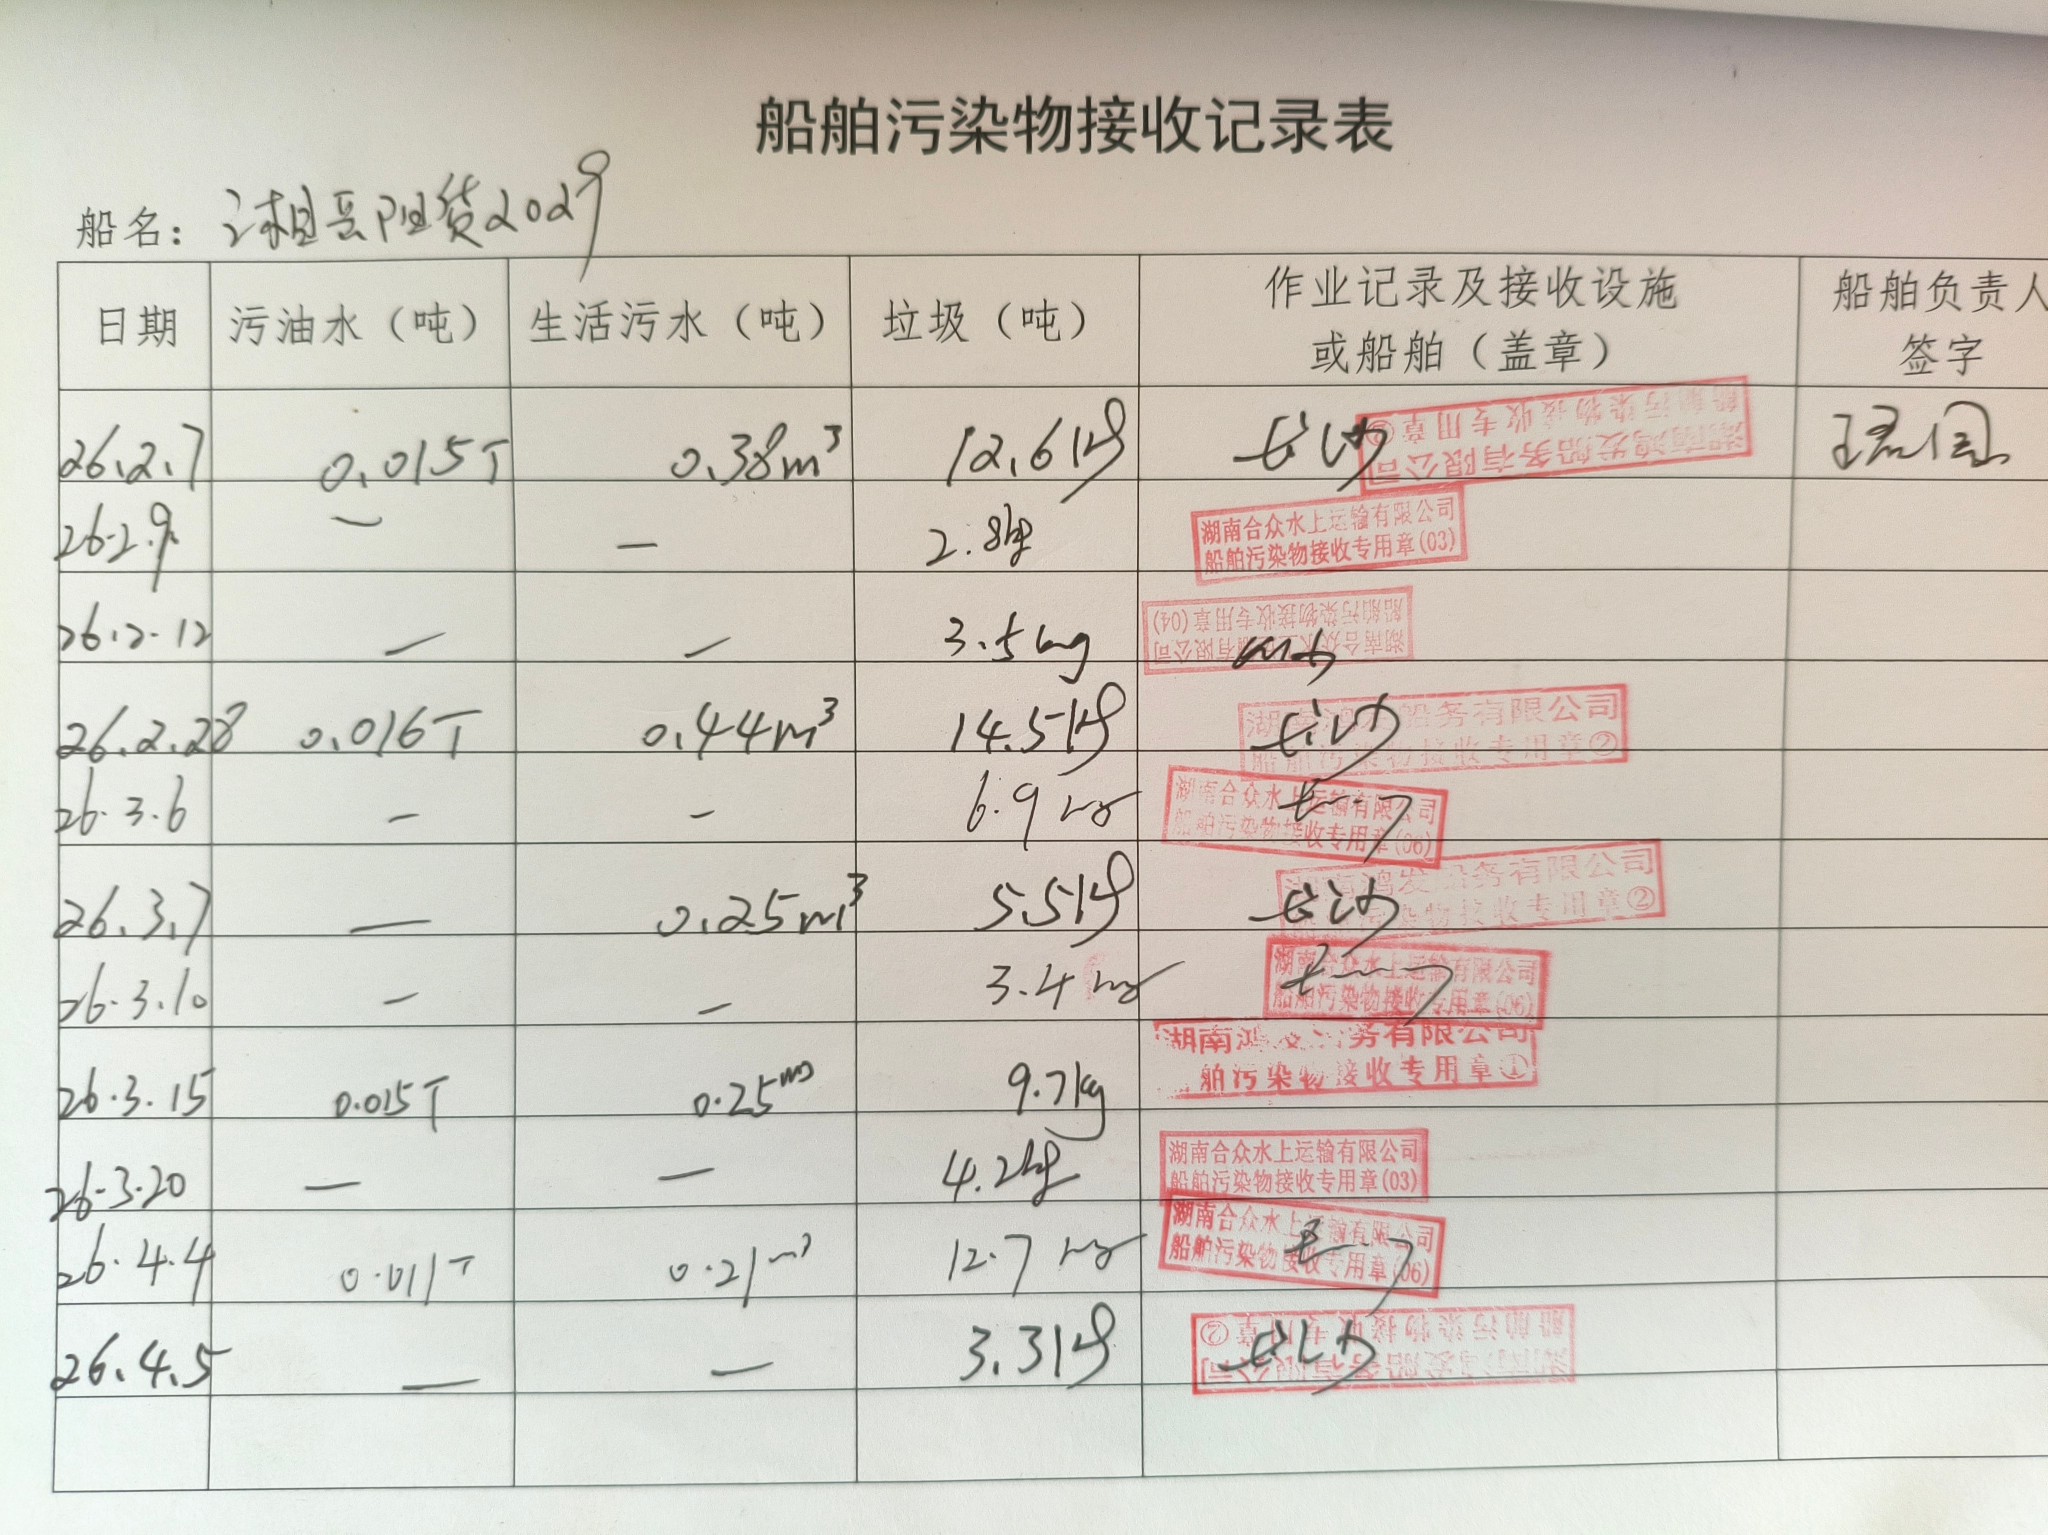 船舶污染物接收记录表
船名：湘岳阳货2029
日期 污油水（吨） 生活污水（吨） 垃圾（吨） 作业记录及接收设施或船舶（盖章） 船舶负责人签字
26.2.7 0.015T 0.38m³ 12.6kg 长沙 湖南鸿发船务有限公司 船舶污染物接收专用章②
26.2.9 — — 2.8kg 湖南合众水上运输有限公司 船舶污染物接收专用章(03)
26.2.12 — — 3.5kg 湖南合众水上运输有限公司 船舶污染物接收专用章(04)
26.2.28 0.016T 0.44m³ 14.5kg 长沙 湖南鸿发船务有限公司 船舶污染物接收专用章②
26.3.6 — — 6.9kg 湖南合众水上运输有限公司 船舶污染物接收专用章(06)
26.3.7 — 0.25m³ 5.5kg 长沙 湖南鸿发船务有限公司 船舶污染物接收专用章②
26.3.10 — — 3.4kg 湖南合众水上运输有限公司 船舶污染物接收专用章(06)
26.3.15 0.015T 0.25m³ 9.7kg 湖南鸿发船务有限公司 船舶污染物接收专用章①
26.3.20 — — 4.2kg 湖南合众水上运输有限公司 船舶污染物接收专用章(03)
26.4.4 0.011T 0.21m³ 12.7kg 湖南合众水上运输有限公司 船舶污染物接收专用章(06)
26.4.5 — — 3.3kg 长沙 湖南鸿发船务有限公司 船舶污染物接收专用章②